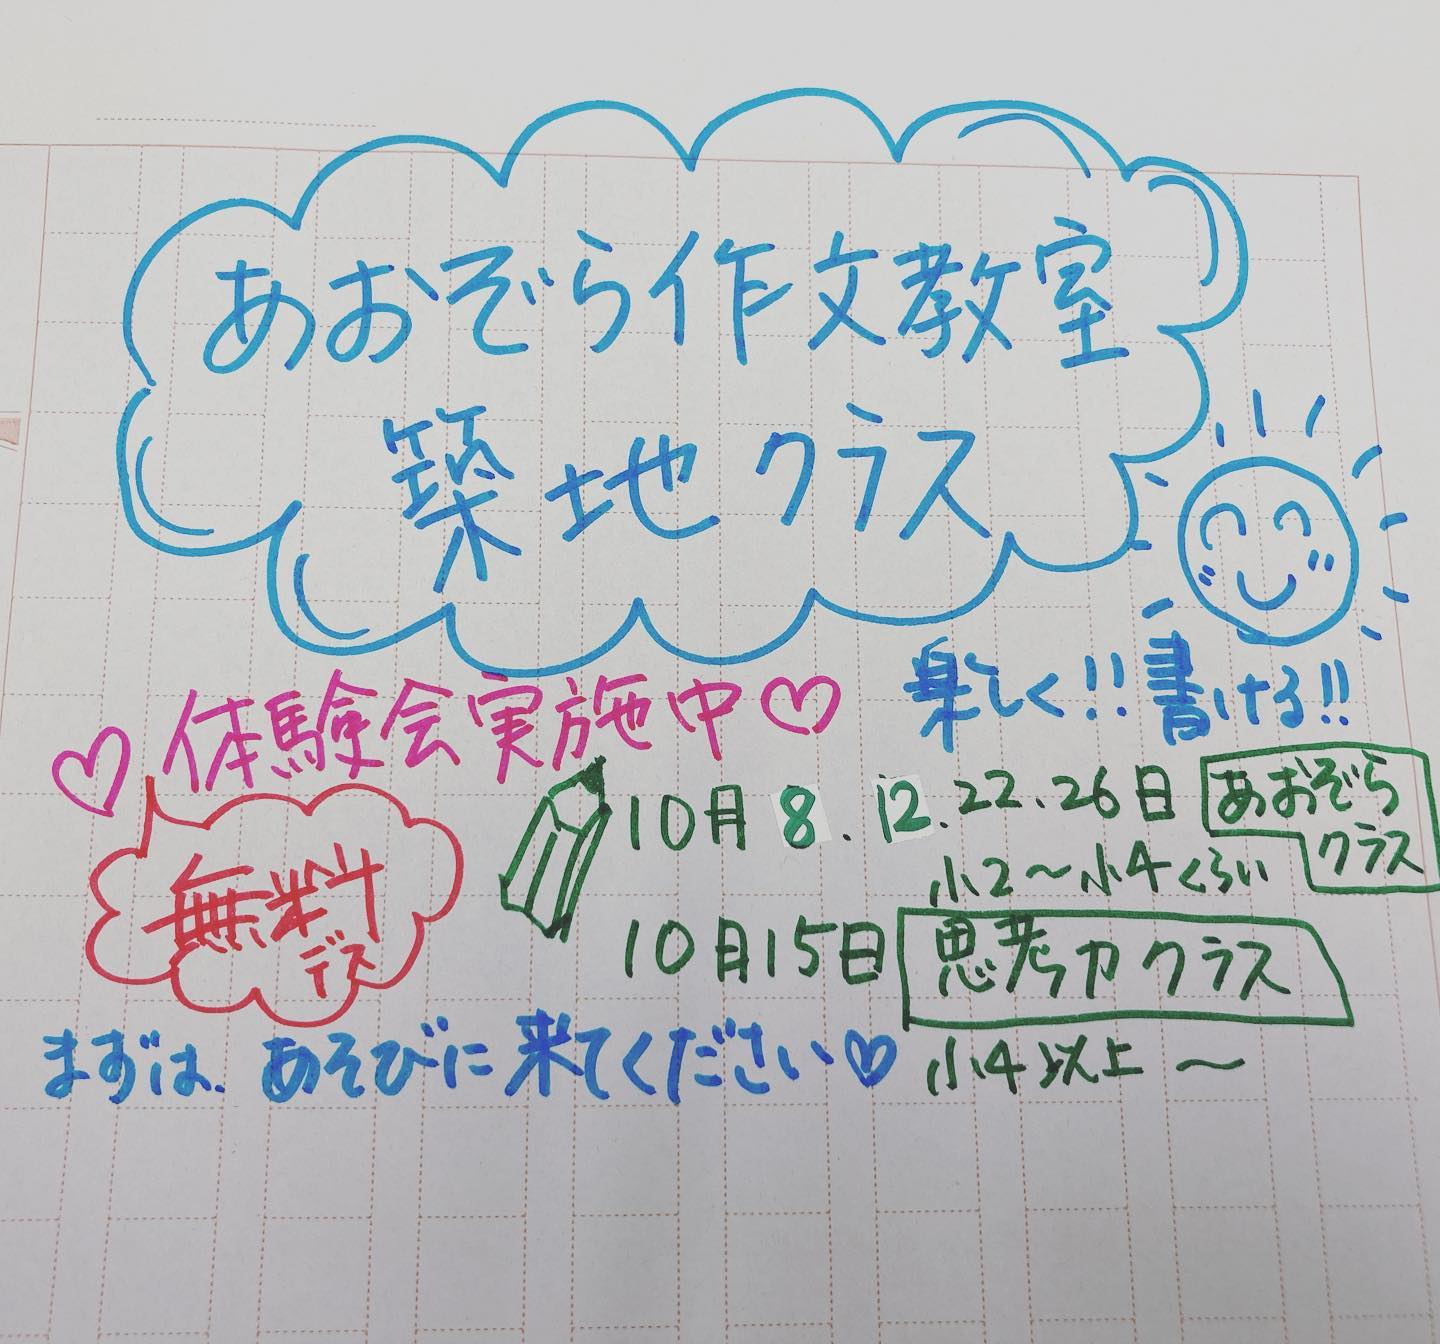 あおぞら作文教室
築地クラス
楽しく!!書ける!!
♡体験会実施中♡
無料
デス
10月8.12.22.26日 あおぞら
クラス
小2〜小4くらい
10月15日 思考力クラス
小4以上〜
まずは、あそびに来てください♡